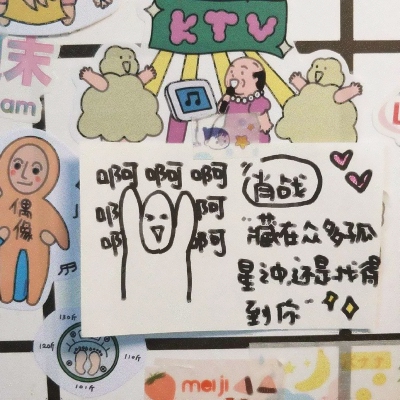 KTV
末
am
偶
像
啊啊啊
啊 啊
啊 啊
"肖战
"藏在众多孤
星中,还是找得
到你"
120斤
110斤
meiji